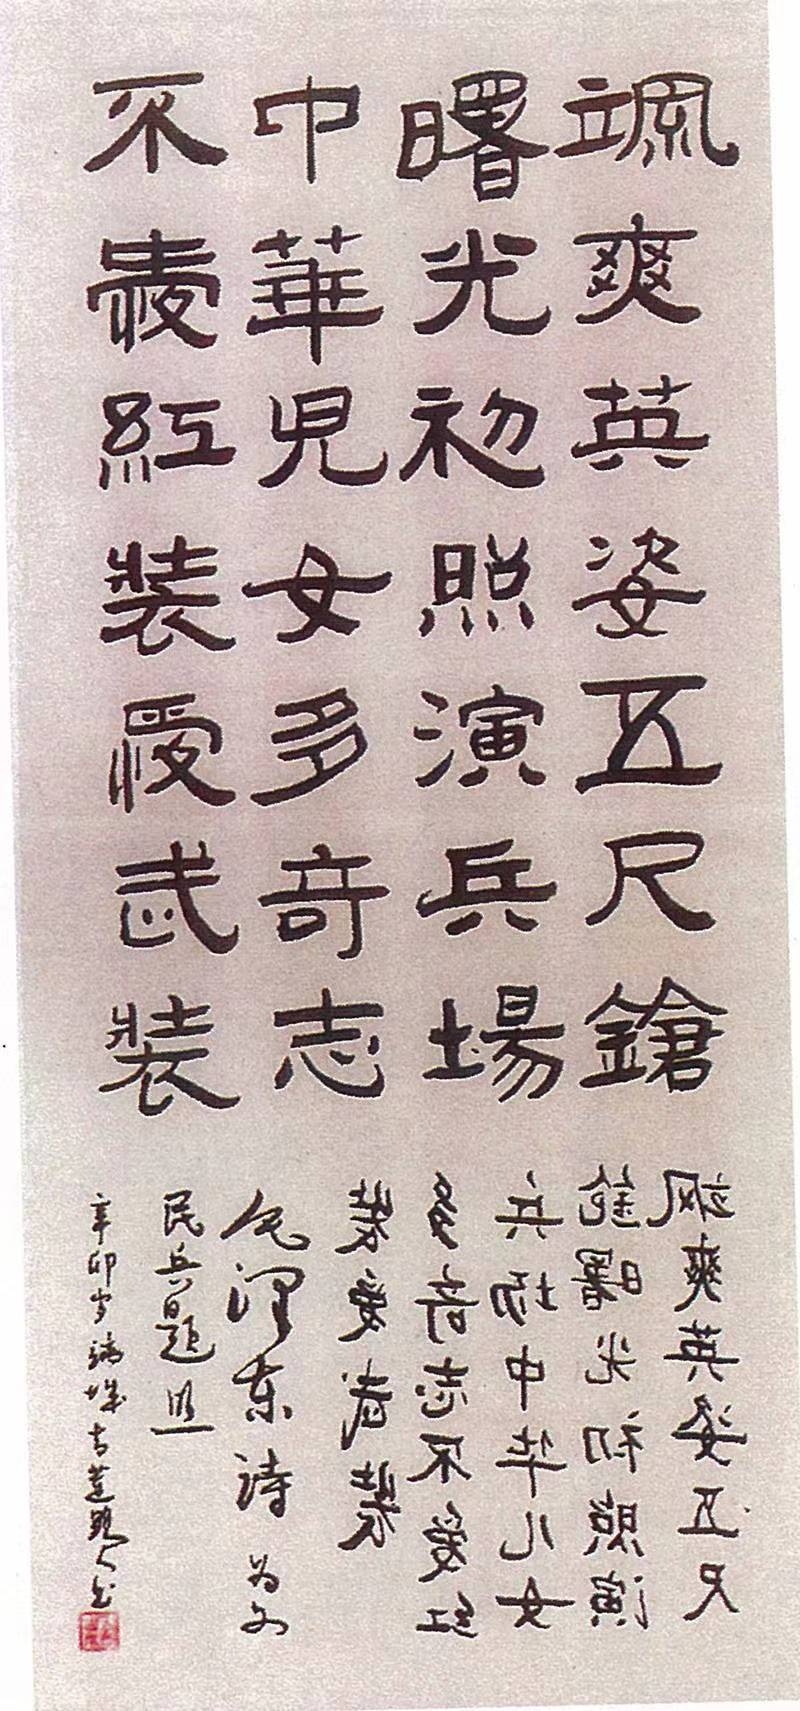 颯爽英姿五尺鎗
曙光初照演兵場
中華児女多奇志
不愛紅裝愛武裝
飒爽英姿五尺
鎗曙光初照演
兵场中华儿女
多奇志不爱红
装爱武装
毛泽东诗为女
民兵題照
辛卯